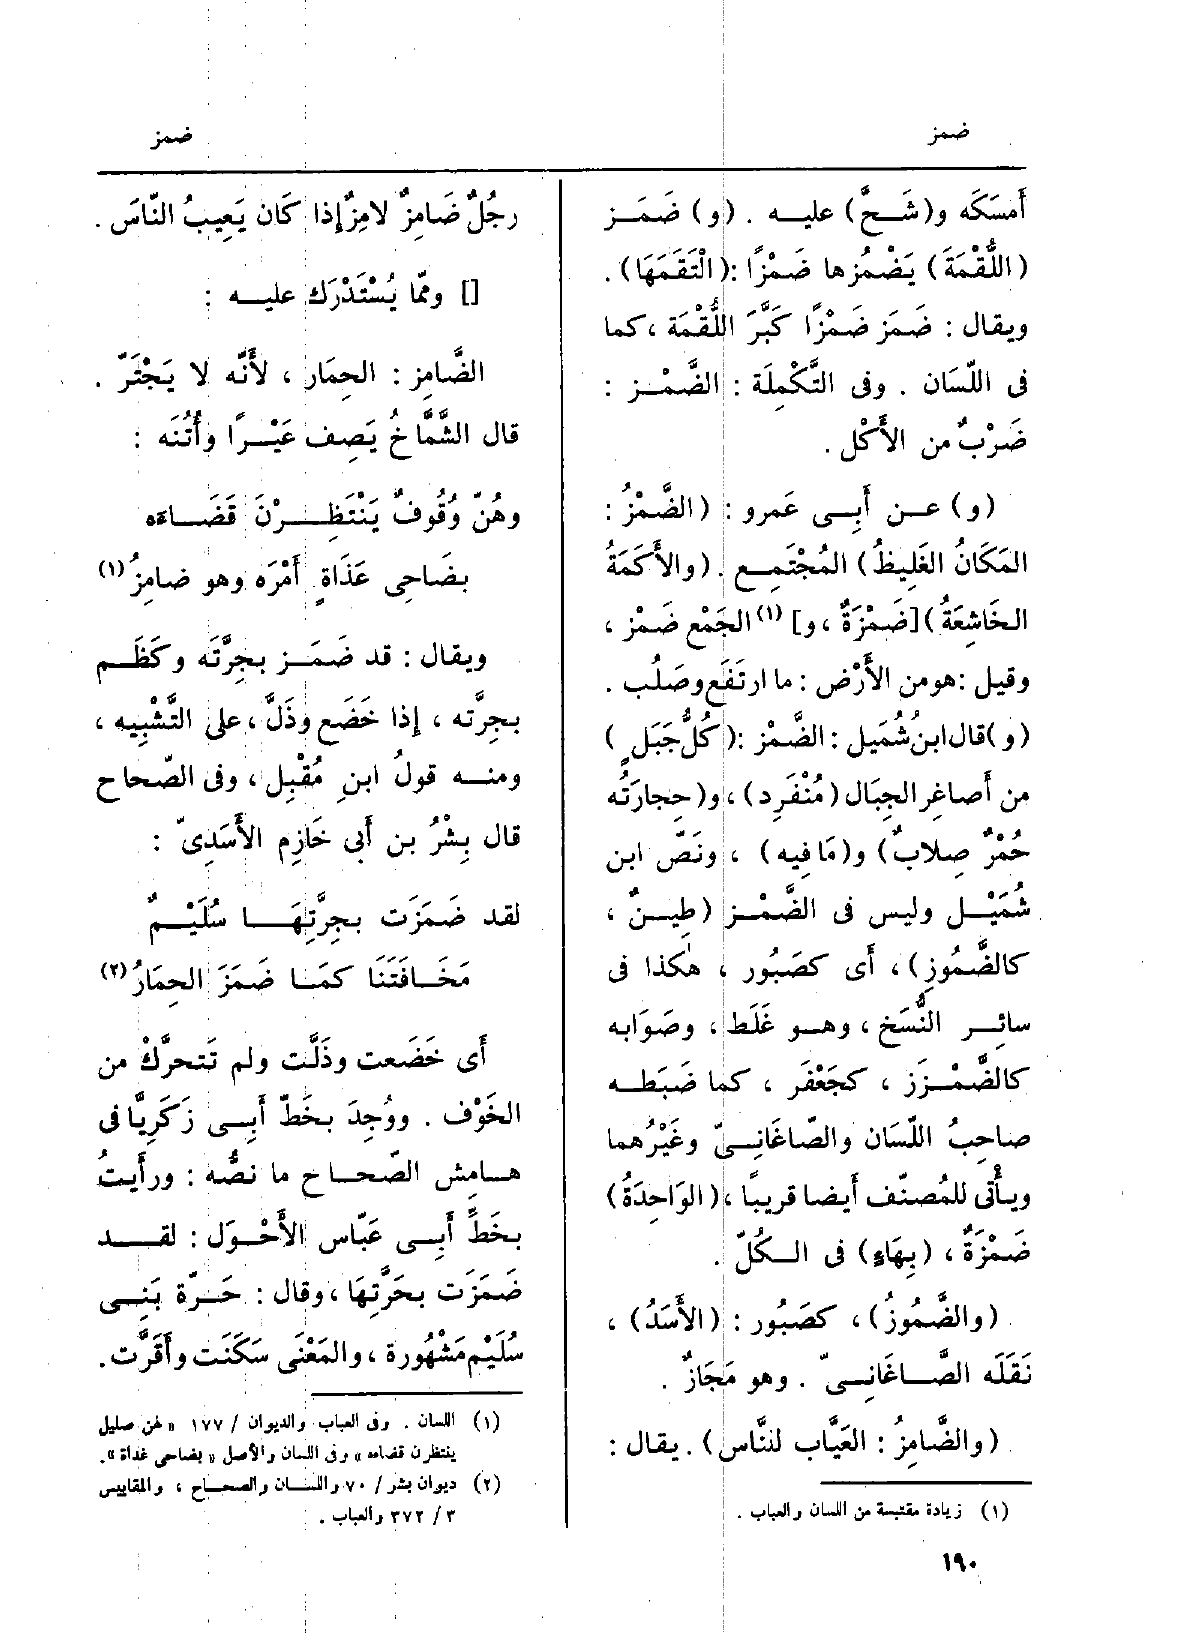 ضمز
ضمز
أَمسَكَه و(شَــحَّ) عليــه . (و) ضَمَــز
(اللُّقْمَةَ) يَضْمُزها ضَمْزًا :(الْتَقَمَهَا) .
ويقال : ضَمَز ضَمْزًا كَبَّرَ اللُّقْمَة ، كما
فى اللّسَان . وفى التَّكْمِلَة : الضَّمْـز :
ضَرْبٌ من الأَكْل .
(و) عــن أَبِـى عَمرو : (الضَّمْزُ :
المَكَانُ الغَلِيظُ) المُجْتَمِـع . (والأَكَمَةُ
الخَاشِعَةُ) [ضَمْزَةٌ ، و] (١) الجَمْع ضَمْز ،
وقيل : هو من الأَرْض : ما ارتَفَع وصَلُب .
(و) قال ابنُ شُمَيل : الضَّمْز :( كُلُّ جَبَلٍ )
من أَصاغِر الجِبَال (مُنْفَرِد) ، و(حِجارَتُه
حُمْرٌ صِلابٌ) و(مَا فِيه) ، ونَصّ ابن
شُمَيْـل وليس فى الضَّمْـز (طِيـنٌ ،
كالضَّمُوزِ) ، أَى كصَبُور ، هٰكذا فى
سائِــر النُّسَخ ، وهــو غَلَط ، وصَوَابه
كالضَّمْـرَز ، كجَعْفَر ، كما ضَبَطــه
صاحِبُ اللّسَان والصّاغَانِــىّ وغَيْرُهما
ويأْتى للمُصنّف أَيضا قريبًا ، (الوَاحِدَةُ)
ضَمْزَةٌ ، (بِهَاءٍ) فى الــكُلّ .
(والضَّمُوزُ) ، كصَبُور : (الأَسَدُ) ،
نَقَلَه الصّـاغَانِــىّ . وهو مَجَازٌ .
(والضَّامِزُ : العَيَّاب للنَّاس) . يقال :
(١) زيادة مقتبسة من اللسان والعباب .
رجُلٌ ضَامِزٌ لامِزٌ إذا كَان يَعِيبُ النَّاسَ .
[] وممّا يُسْتَدْرَك عليــه :
الضَّامِز : الحِمَار ، لأَنَّه لا يَجْتَرّ .
قال الشَّمَّاخُ يَصِف عَيْــرًا وأُتُنَه :
وهُنّ وُقُوفٌ يَنْتَظِــرْنَ قَضَــاءَه
بضَاحِى عَذَاةٍ أَمْرَه وهو ضامِزُ (١)
ويقال : قد ضَمَــز بجِرَّتَه وكَظَــم
بجِرَّته ، إذا خَضَع وذَلَّ ، على التَّشْبِيه ،
ومنــه قولُ ابنِ مُقْبِل ، وفى الصّحاح
قال بِشْرُ بن أَبى خَازِم الأَسَدِىّ :
لقد ضَمَزَت بجِرَّتِهَــا سُلَيْــمٌ
مَخَـافَتَنَا كمَــا ضَمَزَ الحِمَارُ (٢)
أَى خَضَعت وذَلَّت ولم تَتحرَّكْ من
الخَوْف . ووُجِدَ بخَطّ أَبِــى زَكَرِيَّا فى
هــامِش الصّحـاح ما نصُّه : ورأَيتُ
بخَطِّ أَبِــى عَبّاس الأَحْوَل : لقــد
ضَمَزَت بحَرَّتِهَا ، وقال : حَـرّة بَنِــى
سُلَيْم مَشْهُورة ، والمَعْنَى سَكَنَت وأَقَرَّت .
(١) اللسان . وفى العباب والديوان / ١٧٧ « لهن صليل
ينتظرن قضاءه » وفى اللسان والأصل « بضاحى غداة » .
(٢) ديوان بشر / ٧٠ واللسـان والصحـاح ، والمقاييس
٣ / ٣٧٢ والعباب .
١٩٠